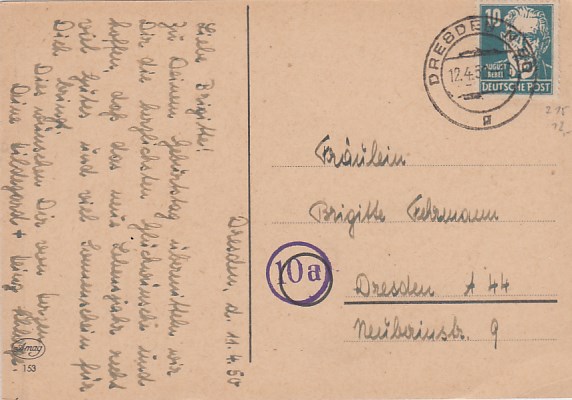 Dresden, d. 11.4.50
Liebe Brigitte!
Zu Deinem Geburtstag übermitteln wir
Dir die herzlichsten Glückwünsche und
hoffen, daß das neue Lebensjahr recht
viel Gutes und viel Sonnenschein für
Dich bringt.
Dies wünschen Dir von Herzen
Deine Hildegard +
Amag
153
DRESDEN
12.4.5
10
AUGUST
BEBEL
DEUTSCHE POST
215
12
Fräulein
Brigitte Fehrmann
10a
Dresden A 44
Neuberinstr. 9